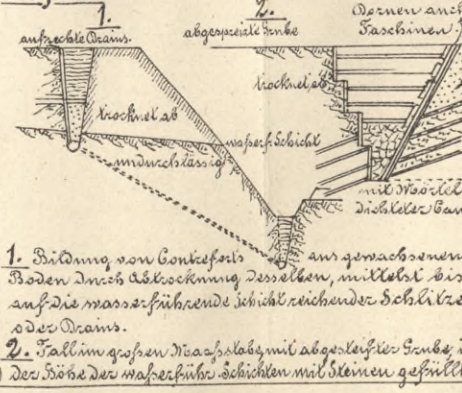 1.
aufrechte Drains.
2.
abgespreizte Grube
Dornen auch
Faschinen.
trocknet ab
trocknet ab
wasserf. Schicht
undurchlässig
mit Mörtel
dichteter
1. Bildung von Contreforts aus gewachsenen
Boden durch Abtrocknung desselben, mittelst bis
auf die wasserführende Schicht reichender Schlitze
oder Drains.
2. Fall im grossen Maasstabe, mit abgesteifter Grube,
der Höhe der wasserführ. Schichten mit Steinen gefüllt